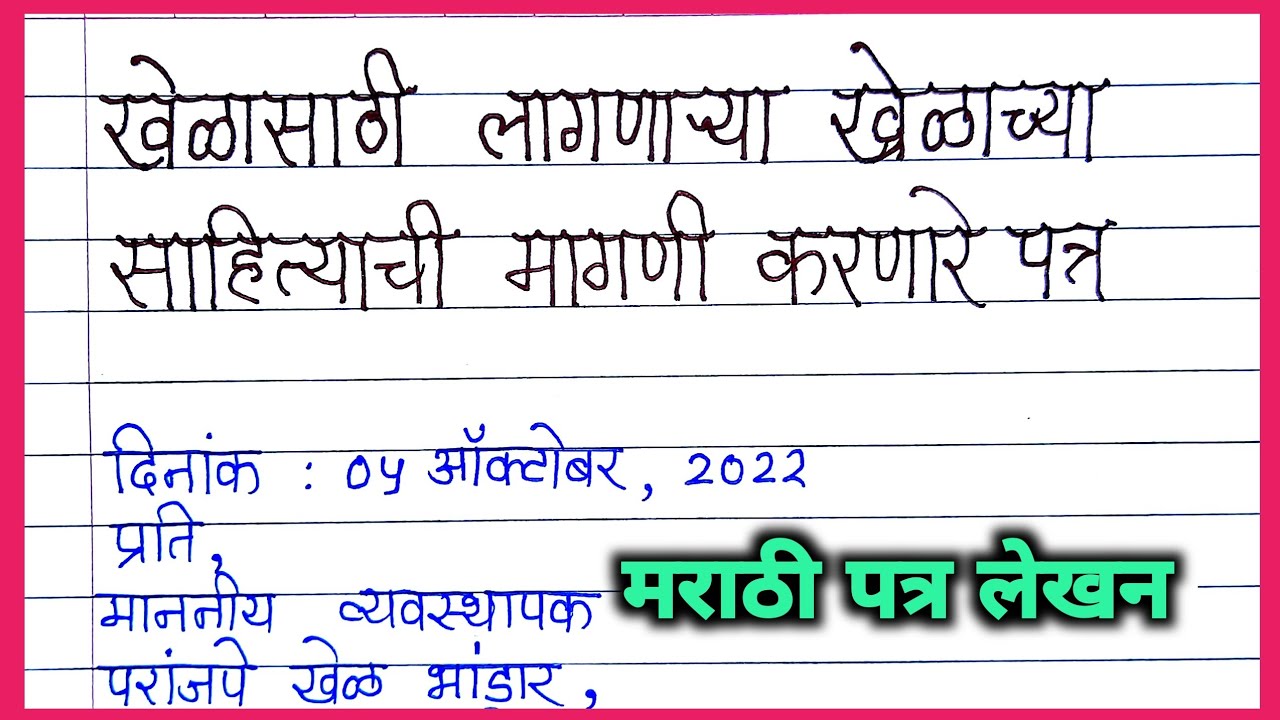 खेळासाठी लागणाऱ्या खेळाच्या
साहित्याची मागणी करणारे पत्र
दिनांक : ०५ ऑक्टोबर, २०२२
प्रति,
माननीय व्यवस्थापक
मराठी पत्र लेखन
परांजपे खेळ भांडार,